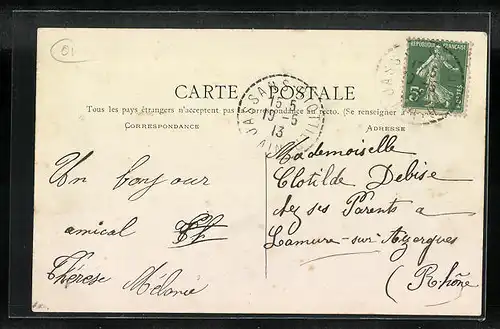 01
RÉPUBLIQUE FRANÇAISE
5c
POSTES
CARTE POSTALE
JASSANS-RIOTTIER
15 5
15-5
13
AIN
Tous les pays étrangers n'acceptent pas la correspondance au recto. (Se renseigner à
CORRESPONDANCE
ADRESSE
Un bonjour
amical
Thérèse Mélanie
Mademoiselle
Clotilde Debise
chez ses Parents a
Lamure-sur-Azergues
(Rhône)